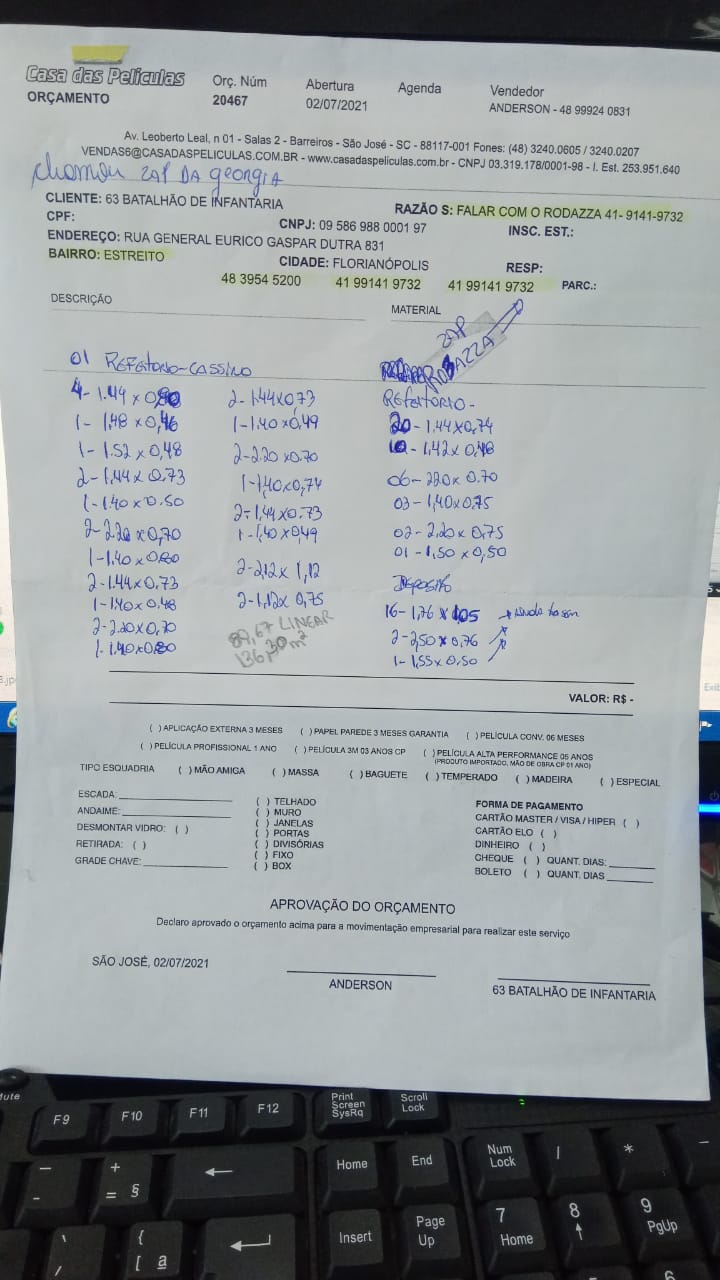 Casa das Películas
ORÇAMENTO
Orç. Núm
20467
Abertura
02/07/2021
Agenda
Vendedor
ANDERSON - 48 99924 0831
Av. Leoberto Leal, n 01 - Salas 2 - Barreiros - São José - SC - 88117-001 Fones: (48) 3240.0605 / 3240.0207
VENDAS6@CASADASPELICULAS.COM.BR - www.casadaspeliculas.com.br - CNPJ 03.319.178/0001-98 - I. Est. 253.951.640
chamou ZAP DA georgia
CLIENTE: 63 BATALHÃO DE INFANTARIA
RAZÃO S: FALAR COM O RODAZZA 41- 9141-9732
CPF:
CNPJ: 09 586 988 0001 97
INSC. EST.:
ENDEREÇO: RUA GENERAL EURICO GASPAR DUTRA 831
BAIRRO: ESTREITO
CIDADE: FLORIANÓPOLIS
RESP:
48 3954 5200
41 99141 9732
41 99141 9732
PARC.:
DESCRIÇÃO
MATERIAL
01 REFEITORIO-CASSINO
4- 1.44 x 0,80
1- 1,48 x 0,46
1- 1.52 x 0,48
2- 1,44 x 0.73
1- 1.40 x 0.50
2- 2.20 x 0,70
1- 1.40 x 0.80
2- 1.44 x 0.73
1- 1.40 x 0.48
2- 2.20 x 0,70
1- 1.40 x 0.80
2- 1.44 x 0,73
1- 1.40 x 0,49
2- 2.20 x 0.70
1- 1,40 x 0,74
2- 1,44 x 0.73
1- 1,40 x 0,49
2- 2,12 x 1,12
2- 1,12 x 0,75
89,67 LINEAR
136,30 m²
ZAP
RODAZZA
REfeitORIO-
20 - 1.44 x 0.74
10 - 1,42 x 0,48
06 - 220 x 0.70
03 - 1,40 x 0.75
02 - 2,20 x 0,75
01 - 1,50 x 0,50
DEPOSITO
16 - 1,76 x 1,05
2 - 2,50 x 0,76
1 - 1,55 x 0,50
VALOR: R$ -
( ) APLICAÇÃO EXTERNA 3 MESES ( ) PAPEL PAREDE 3 MESES GARANTIA ( ) PELÍCULA CONV. 06 MESES
( ) PELÍCULA PROFISSIONAL 1 ANO ( ) PELÍCULA 3M 03 ANOS CP ( ) PELÍCULA ALTA PERFORMANCE 05 ANOS
(PRODUTO IMPORTADO, MÃO DE OBRA CP 01 ANO)
TIPO ESQUADRIA ( ) MÃO AMIGA ( ) MASSA ( ) BAGUETE ( ) TEMPERADO ( ) MADEIRA ( ) ESPECIAL
ESCADA:
ANDAIME:
DESMONTAR VIDRO: ( )
RETIRADA: ( )
GRADE CHAVE:
( ) TELHADO
( ) MURO
( ) JANELAS
( ) PORTAS
( ) DIVISÓRIAS
( ) FIXO
( ) BOX
FORMA DE PAGAMENTO
CARTÃO MASTER / VISA / HIPER ( )
CARTÃO ELO ( )
DINHEIRO ( )
CHEQUE ( ) QUANT. DIAS:
BOLETO ( ) QUANT. DIAS
APROVAÇÃO DO ORÇAMENTO
Declaro aprovado o orçamento acima para a movimentação empresarial para realizar este serviço
SÃO JOSÉ, 02/07/2021
ANDERSON
63 BATALHÃO DE INFANTARIA
F9
F10
F11
F12
Print Screen SysRq
Scroll Lock
Home
End
Num Lock
/
*
Insert
Page Up
7 Home
8
9 PgUp